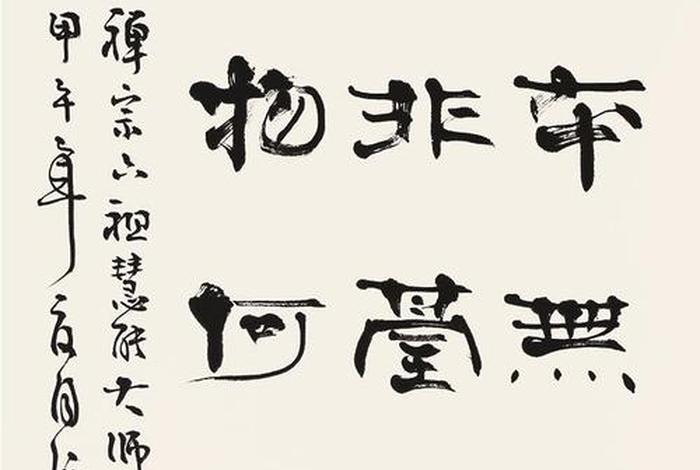 本無
非臺
物何
禪宗六祖慧能大師
甲午年